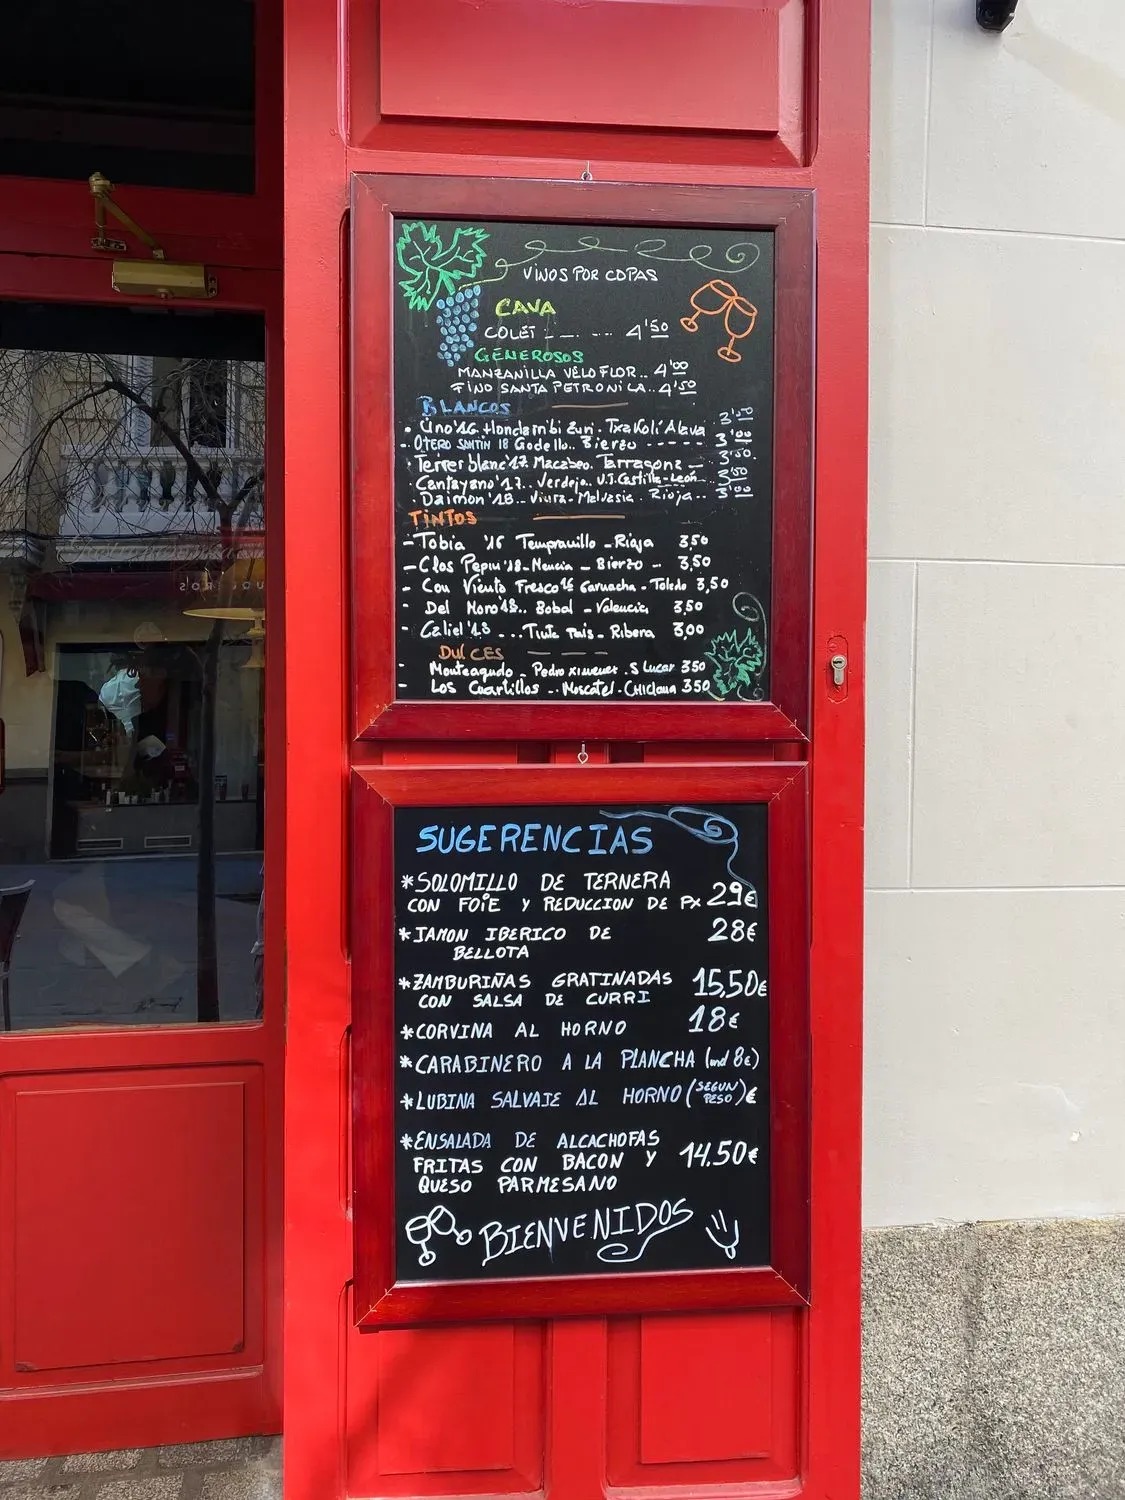 VINOS POR COPAS
CAVA
COLET _ _ . _ . _ . 4'50
GENEROSOS
MANZANILLA VELO FLOR.. 4'00
FINO SANTA PETRONILA.. 4'50
BLANCOS
Uno'16. Hondarribi Zuri. Txakoli Alava 3'50
OTERO SANTIN 18 Godello.. Bierzo ----- 3'00
Terrer blanc'17. Macabeo. Tarragona - 3'50.
Cantayano'17.. Verdejo.. V.T. Castilla-León 3'50
Daimon'18.. Viura - Malvasia. Rioja.. 3'00
TINTOS
- Tobia '16 Tempranillo - Rioja 3,50
- Clos Pepin'18 - Mencia - Bierzo - 3,50
- Con Viento Fresco 16 Garnacha - Toledo 3,50
- Del Moro'18.. Bobal - Valencia 3,50
- Caliel'18 ... Tinta Pais - Ribera 3,00
DULCES
- Monteagudo - Pedro ximenez. S Lucar 350
- Los Cuartillos -. Moscatel - CHiclana 350
SUGERENCIAS
*SOLOMILLO DE TERNERA
CON FOIE Y REDUCCION DE PX 29€
*JAMON IBERICO DE 28€
BELLOTA
*ZAMBURIÑAS GRATINADAS 15,50€
CON SALSA DE CURRI
*CORVINA AL HORNO 18€
*CARABINERO A LA PLANCHA (und 8€)
*LUBINA SALVAJE AL HORNO (SEGUN PESO)€
*ENSALADA DE ALCACHOFAS
FRITAS CON BACON Y 14.50€
QUESO PARMESANO
BIENVENIDOS